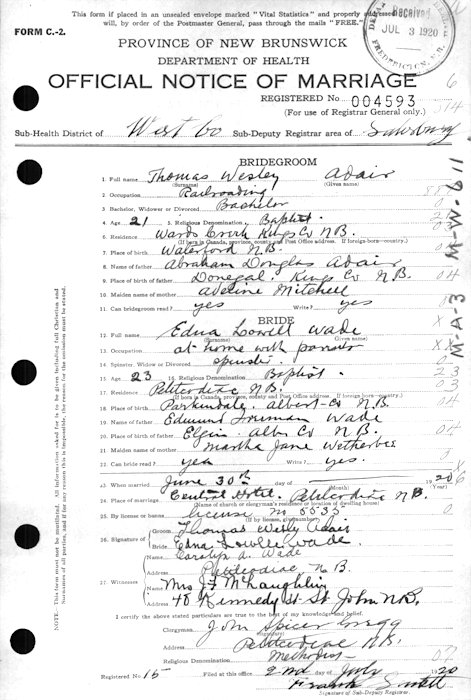 This form if placed in an unsealed envelope marked "Vital Statistics" and properly addressed
will, by order of the Postmaster General, pass through the mails "FREE."
FORM C.-2.
Received
JUL 3 1920
FREDERICTON, N.B.
PROVINCE OF NEW BRUNSWICK
DEPARTMENT OF HEALTH
OFFICIAL NOTICE OF MARRIAGE
REGISTERED NO 004593
(For use of Registrar General only.)
Sub-Health District of West Co Sub-Deputy Registrar area of Salisbury
BRIDEGROOM
1. Full name Thomas Wesley Adair
(Surname) (Given names)
2. Occupation Railroading
3. Bachelor, Widower or Divorced Bachelor
4. Age 21 5. Religious Denomination Baptist
6. Residence Wards Creek Kings Co N.B.
(If born in Canada, province, county and Post Office address. If foreign-born—country.)
7. Place of birth Waterford N.B.
8. Name of father Abraham Douglas Adair
9. Place of birth of father Donegal. Kings Co N.B.
10. Maiden name of mother Adeline Mitchell
11. Can bridegroom read? yes Write? yes
BRIDE
12. Full name Edna Lowell Wade
(Surname) (Given names)
13. Occupation at home with parents
14. Spinster, Widow or Divorced spinster
15. Age 23 16. Religious Denomination Baptist
17. Residence Petitcodiac N.B.
(If born in Canada, province, county and Post Office address. If foreign-born—country.)
18. Place of birth Parkindale. Albert Co N.B.
19. Name of father Edmund Truman Wade
20. Place of birth of father Elgin. Alb. Co N.B.
21. Maiden name of mother Martha Jane Wetherbee
22. Can bride read? yes Write? yes.
23. When married June 30th 1920
(Month) (Day) (Year)
24. Place of marriage Central Hotel. Petitcodiac N.B.
(Name of church or clergyman's residence or location of dwelling house)
25. By license or banns license No 5535
(If by license, give number)
26. Signature of Groom Thomas Wesley Adair
Bride Edna Lowell Wade.
27. Witnesses Name Carolyn A. Wade
Address Petitcodiac N.B.
Name Mrs J F McLaughlin
Address 48 Kennedy St St John N.B.
I certify the above stated particulars are true to the best of my knowledge and belief.
Clergyman John Spicer Gregg
(Signature)
Address Petitcodiac N.B.
Denomination Methodist
Registered No 15 Filed at this office 2nd July 1920
Signature of Sub-Deputy Registrar.
M-W-611
M-A-3
NOTE: This form must not be mutilated. All information asked for is to be given including full Christian and
Surnames of all parties, and if for any reason this is impossible, the reason for the omission must be stated.